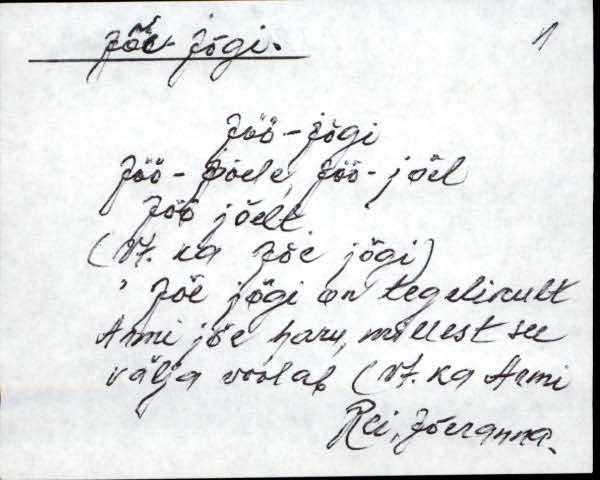 Jõe-jõgi.
1
Jöö-jõgi
Jöö-jõele, Jöö-jõel
Jöö jõelt
(Vt. ka Jõe jõgi)
Jõe jõgi on tegelikult
Armi jõe haru, millest see
välja voolab (Vt. ka Armi
Rei, Jõeranna.